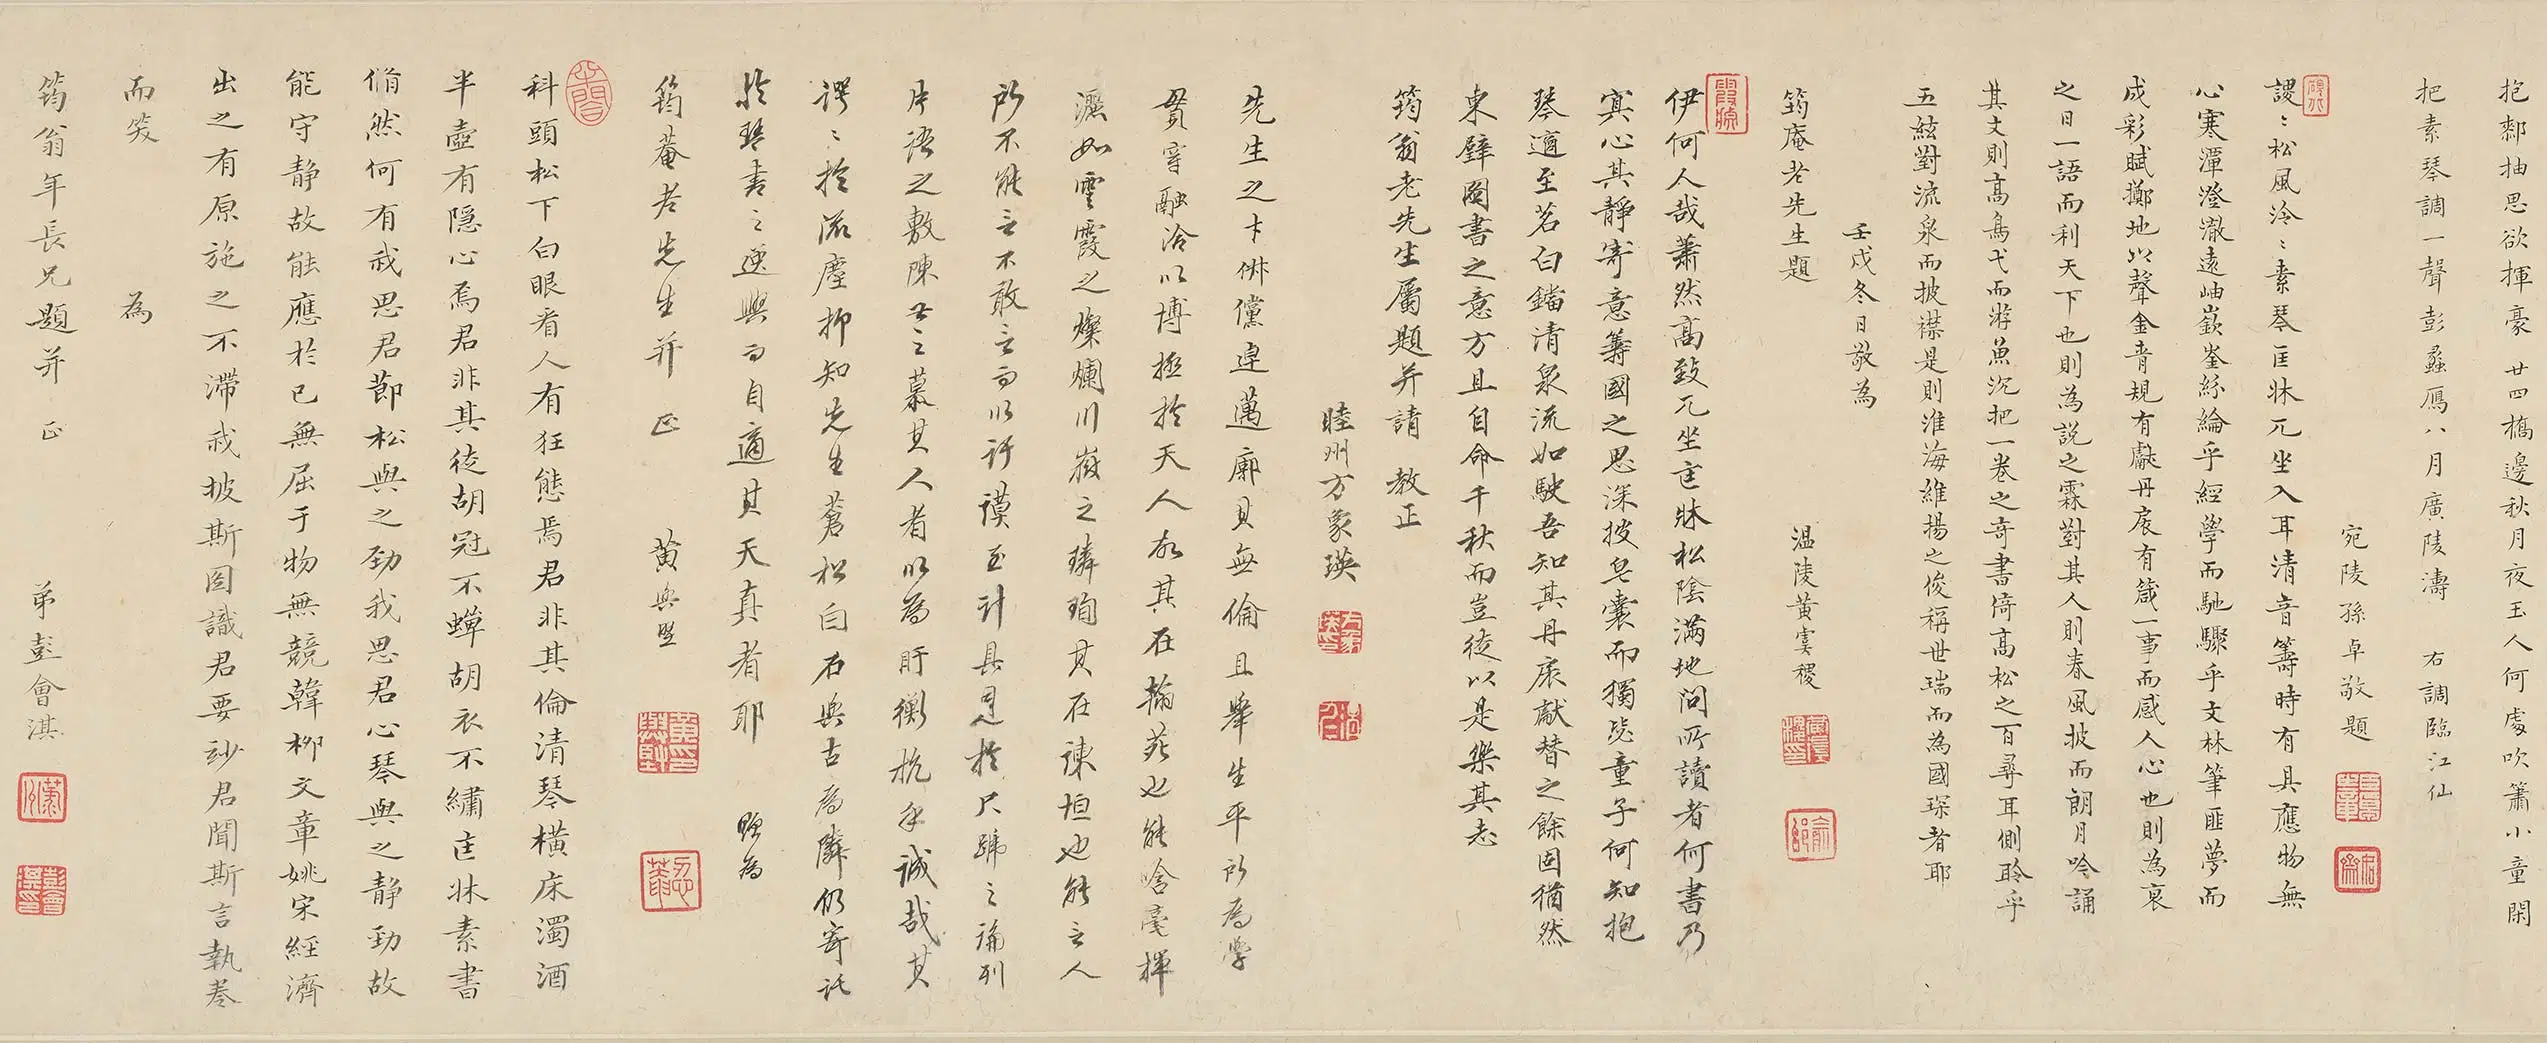 抱鄰抽思欲揮豪廿四橋邊秋月夜玉人何處吹簫小童閑
把素琴調一聲彭蠡鴈八月廣陵濤　右調臨江仙
宛陵孫卓敬題
謖〻松風泠〻素琴匡牀兀坐入耳清音籌時有具應物無
心寒潭澄澈遠岫嶔崟絲綸乎經學而馳驟乎文林筆匪夢而
成彩賦擲地以聲金青規有獻丹扆有箴一事而感人心也則為袞
之日一語而利天下也則為說之霖對其人則春風披而朗月吟誦
其文則高鳥弋而游魚沉把一卷之奇書倚高松之百尋耳側聆乎
五絃對流泉而披襟是則淮海維揚之俊稱世瑞而為國琛者耶
壬戌冬日敬為
筠庵老先生題
温陵黃虞稷
伊何人哉蕭然高致兀坐匡牀松陰滿地問所讀者何書乃
寘心其靜寄意籌國之思深披皂囊而獨㞃童子何知抱
琴適至茗白鐺清泉流如駛吾知其丹扆獻替之餘固猶然
東壁圖書之意方且自命千秋而豈徒以是樂其志
筠翁老先生屬題并請　教正
睦州方象瑛
先生之才俶儻卓邁廓其無倫且舉生平所為學
貫穿融洽以博極於天人故其在翰苑也能含毫揮
灑如雲霞之燦爛川嶽之璘珣其在諫垣也能言人
所不能言不敢言而以訏謨至計具見於尺疏之論列
片語之敷陳世之慕其人者以為盱衡抗手誠哉其
諤〻於流塵抑知先生蒼松白石與古為隣仍寄託
於琴書之逸興而自適其天真者耶　題為
筠菴老先生并　正　黃與堅
科頭松下白眼看人有狂態焉君非其倫清琴橫床濁酒
半壺有隱心焉君非其徒胡冠不蟬胡衣不繡匡牀素書
翛然何有我思君節松與之勁我思君心琴與之靜勁故
能守靜故能應於己無屈于物無競韓柳文章姚宋經濟
出之有原施之不滯我披斯圖識君要妙君聞斯言執卷
而笑　為
筠翁年長兄題并　正　弟彭會淇